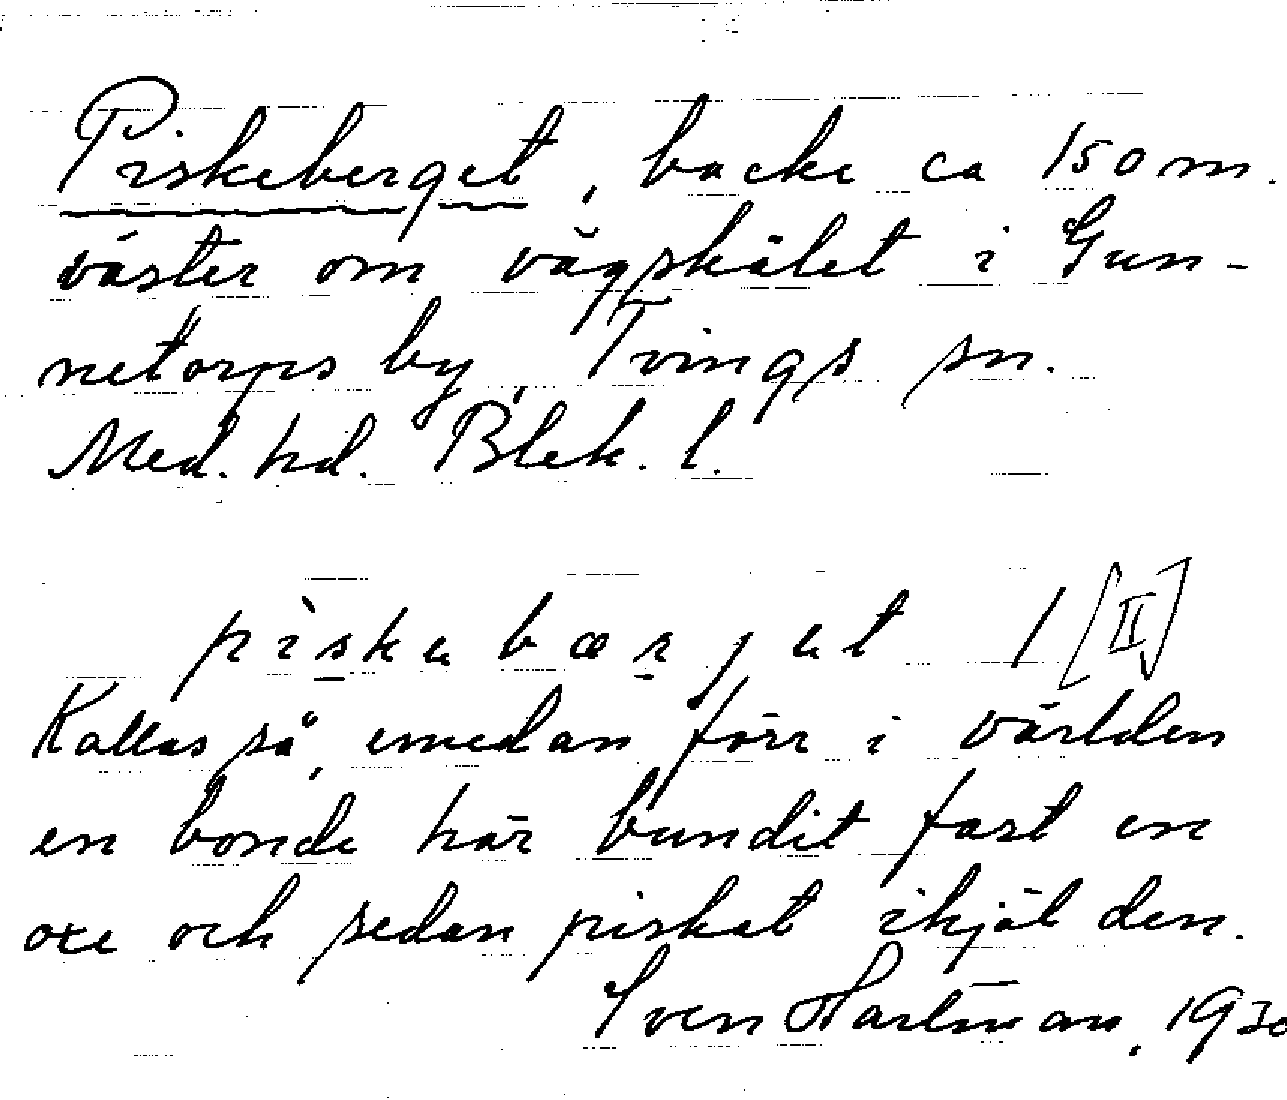 Piskeberget, backe ca 150 m.
väster om vägskälet i Gun-
netorps by, Tvings sn.
Med. hd. Blek. l.
pìskabærjat 1 [II]
Kallas så, emedan förr i världen
en bonde här bundit fast en
oxe och sedan piskat ihjäl den.
Sven Hartman, 1930